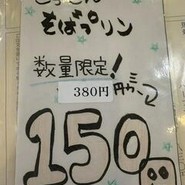 そばプリン
数量限定!
380円
150